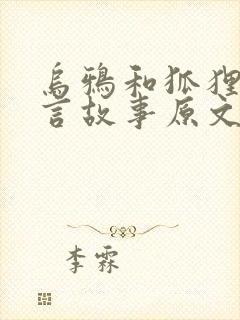 乌鸦和狐狸
言故事原文
李霖